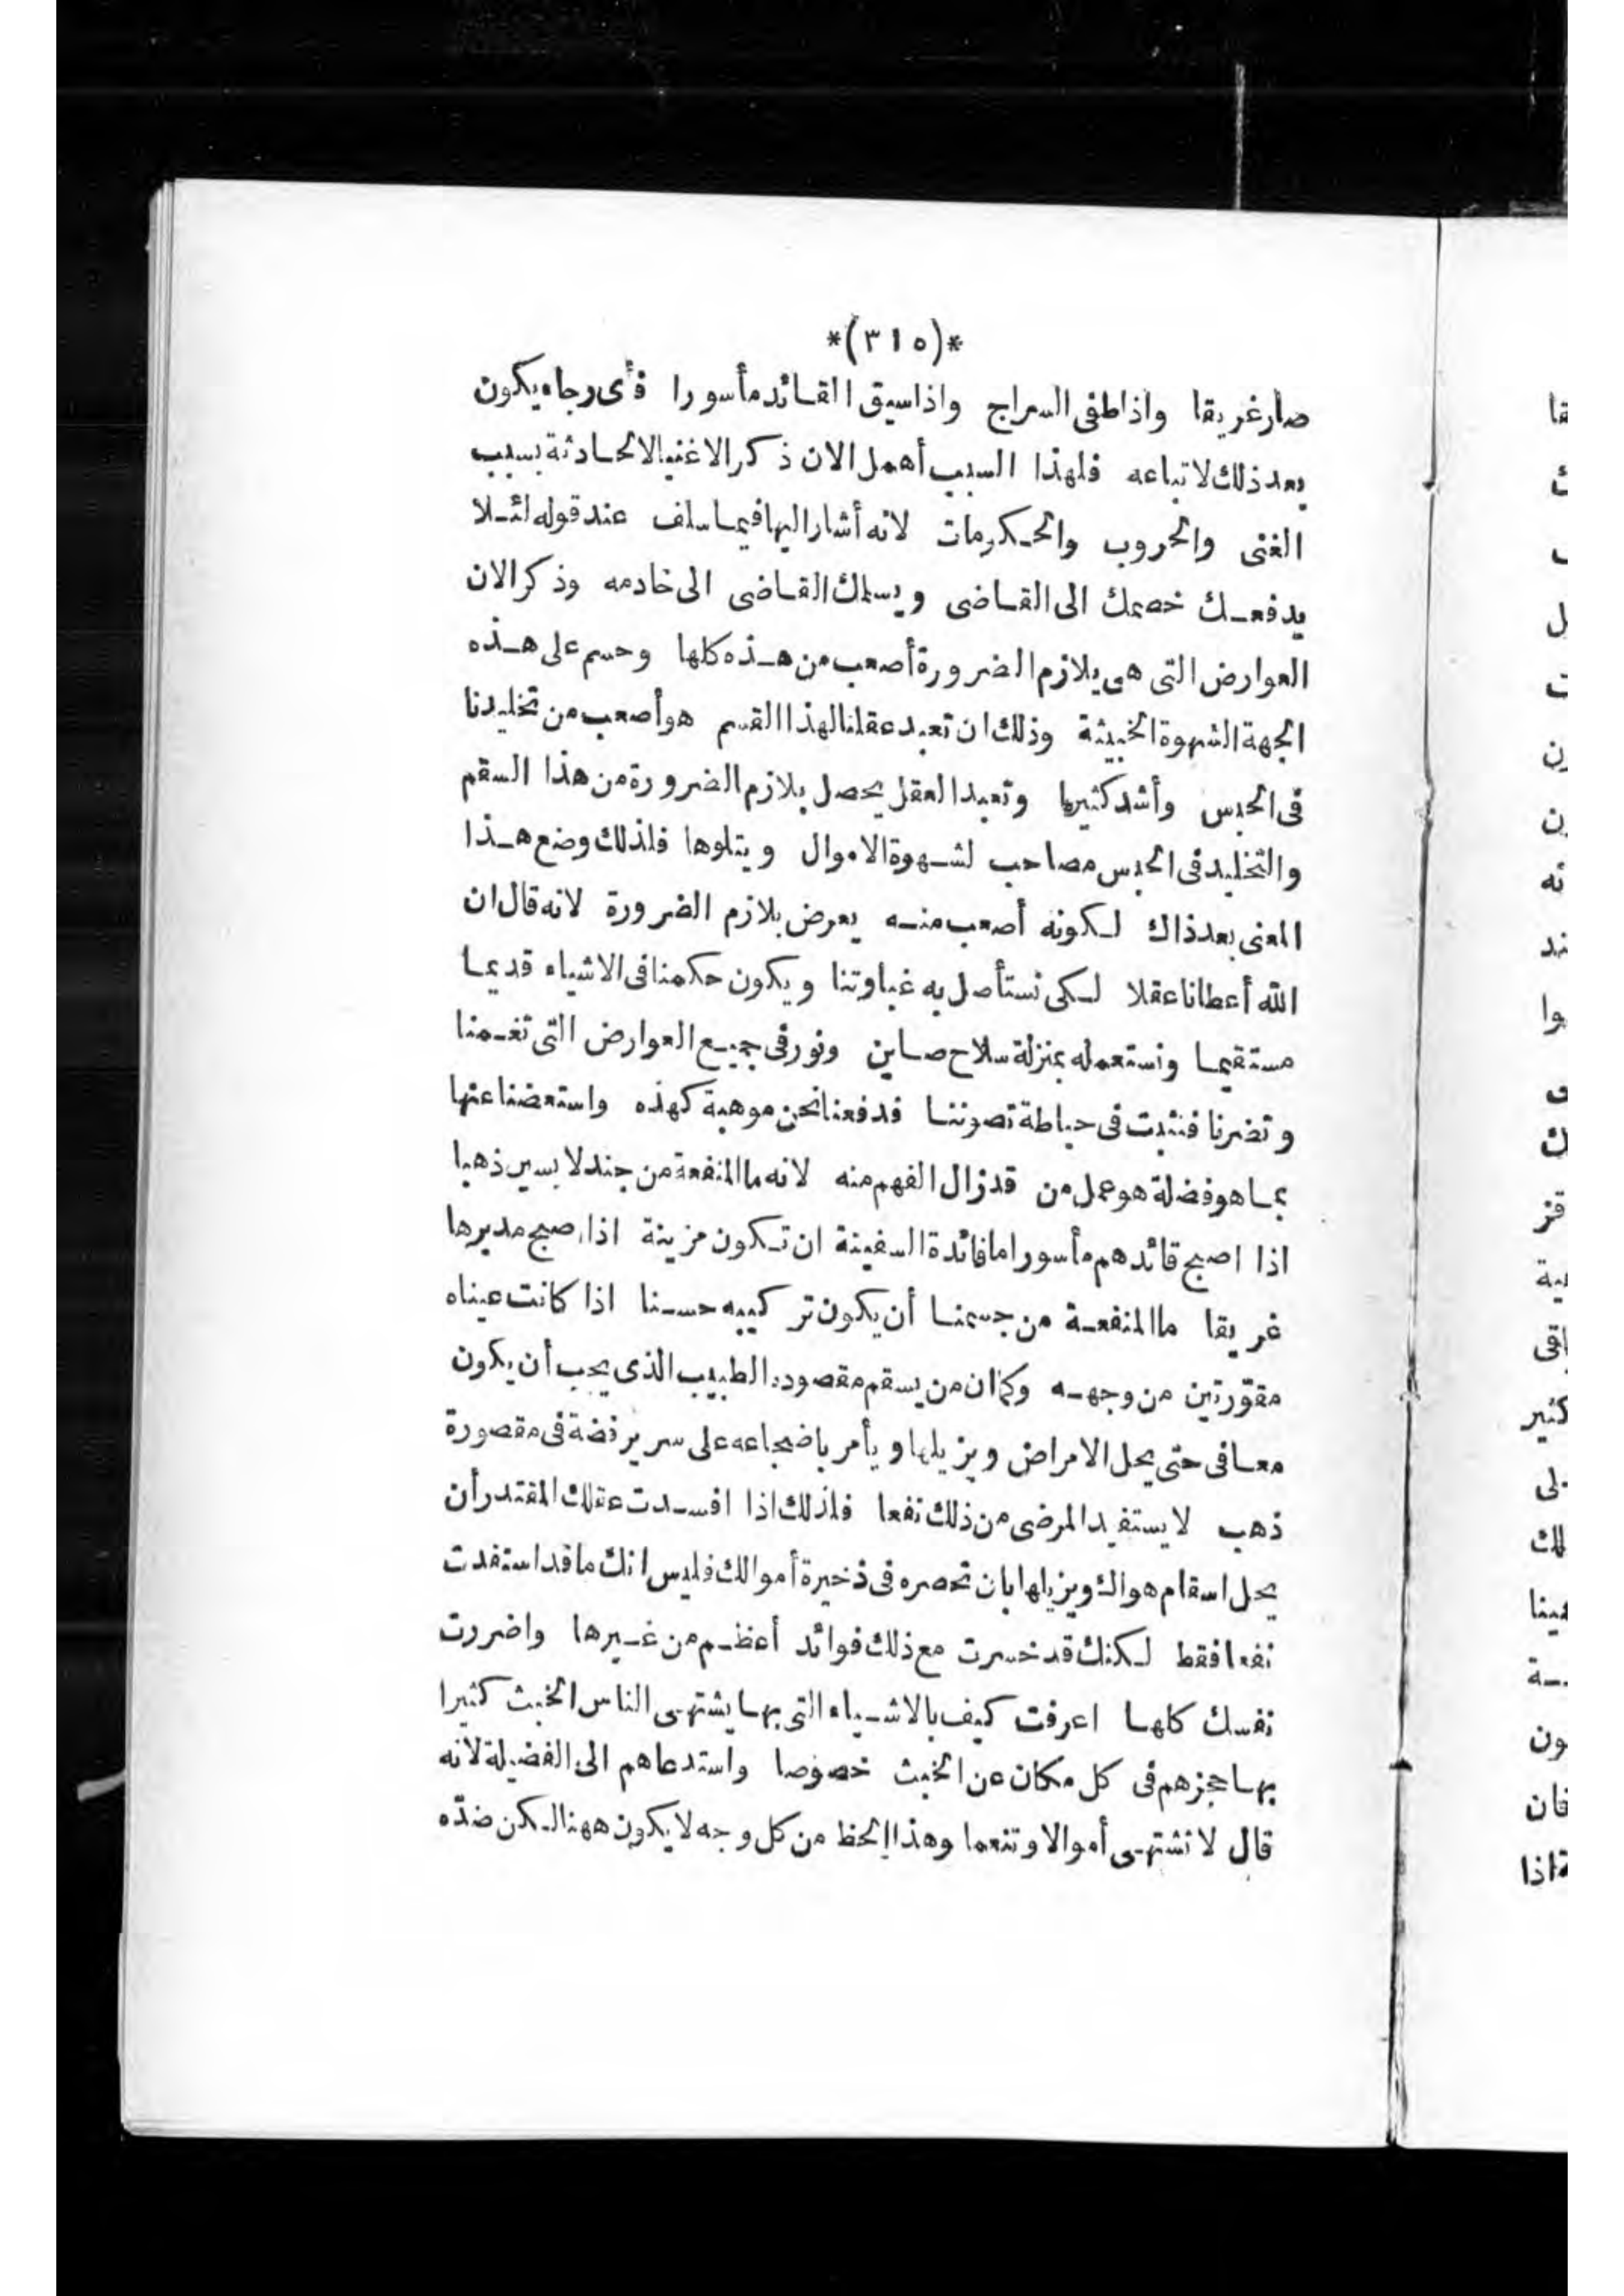 *(٣١٥)*
صار غريقا واذا طفى السراج واذا سيق القائد مأسورا فأى رجاء يكون
بعد ذلك لاتباعه فلهذا السبب أهمل الان ذكر الاغتيالا لحادثة بسبب
الغنى والحروب والحكومات لانه أشار اليها فيما سلف عند قوله لئلا
يدفعك خصمك الى القاضى ويسلمك القاضى الى خادمه وذكر الان
العوارض التى هى بلازم الضرورة أصعب من هذه كلها وحسم على هذه
الجهة الشهوة الخبيثة وذلك ان تعبد عقلنا لهذا القسم هو أصعب من تخليدنا
فى الحبس وأشد كثيرا وتعبد العقل يحصل بلازم الضرورة من هذا السقم
والتخليد فى الحبس مصاحب لشهوة الاموال ويتلوها فلذلك وضع هذا
المعنى بعد ذاك لكونه أصعب منه يعرض بلازم الضرورة لانه قال ان
الله أعطانا عقلا لكى نستأصل به غباوتنا ويكون حكمنا فى الاشياء قديما
مستقيما ونستعمله بمنزلة سلاح صاين ونور فى جميع العوارض التى تغمنا
وتضرنا فنثبت فى حياطة تصوننا فدفعنا نحن موهبة كهذه واستعضنا عنها
بما هو فضلة هو عمل من قد زال الفهم منه لانه ما المنفعة من جند لابسين ذهبا
اذا اصبح قائدهم مأسورا ما فائدة السفينة ان تكون مزينة اذا اصبح مدبرها
غريقا ما المنفعة من جسمنا أن يكون تركيبه حسنا اذا كانت عيناه
مقوّرتين من وجهه وكما ان من يسقم مقصوده الطبيب الذى يجب أن يكون
معافى حتى يحل الامراض ويزيلها ويأمر باضجاعه على سرير فضة فى مقصورة
ذهب لا يستفيد المرضى من ذلك نفعا فلذلك اذا افسدت عقلك المقتدر أن
يحل اسقام هواك ويزيلها بان تحصره فى ذخيرة أموالك فليس انك ما قد استفدت
نفعا فقط لكنك قد خسرت مع ذلك فوائد أعظم من غيرها واضررت
نفسك كلها اعرفت كيف بالاشياء التى بها يشتهى الناس الخبث كثيرا
بها حجزهم فى كل مكان عن الخبث خصوصا واستدعاهم الى الفضيلة لانه
قال لا نشتهى أموالا وتنعما وهذا الحظ من كل وجه لا يكون ههنا لكن ضدّه